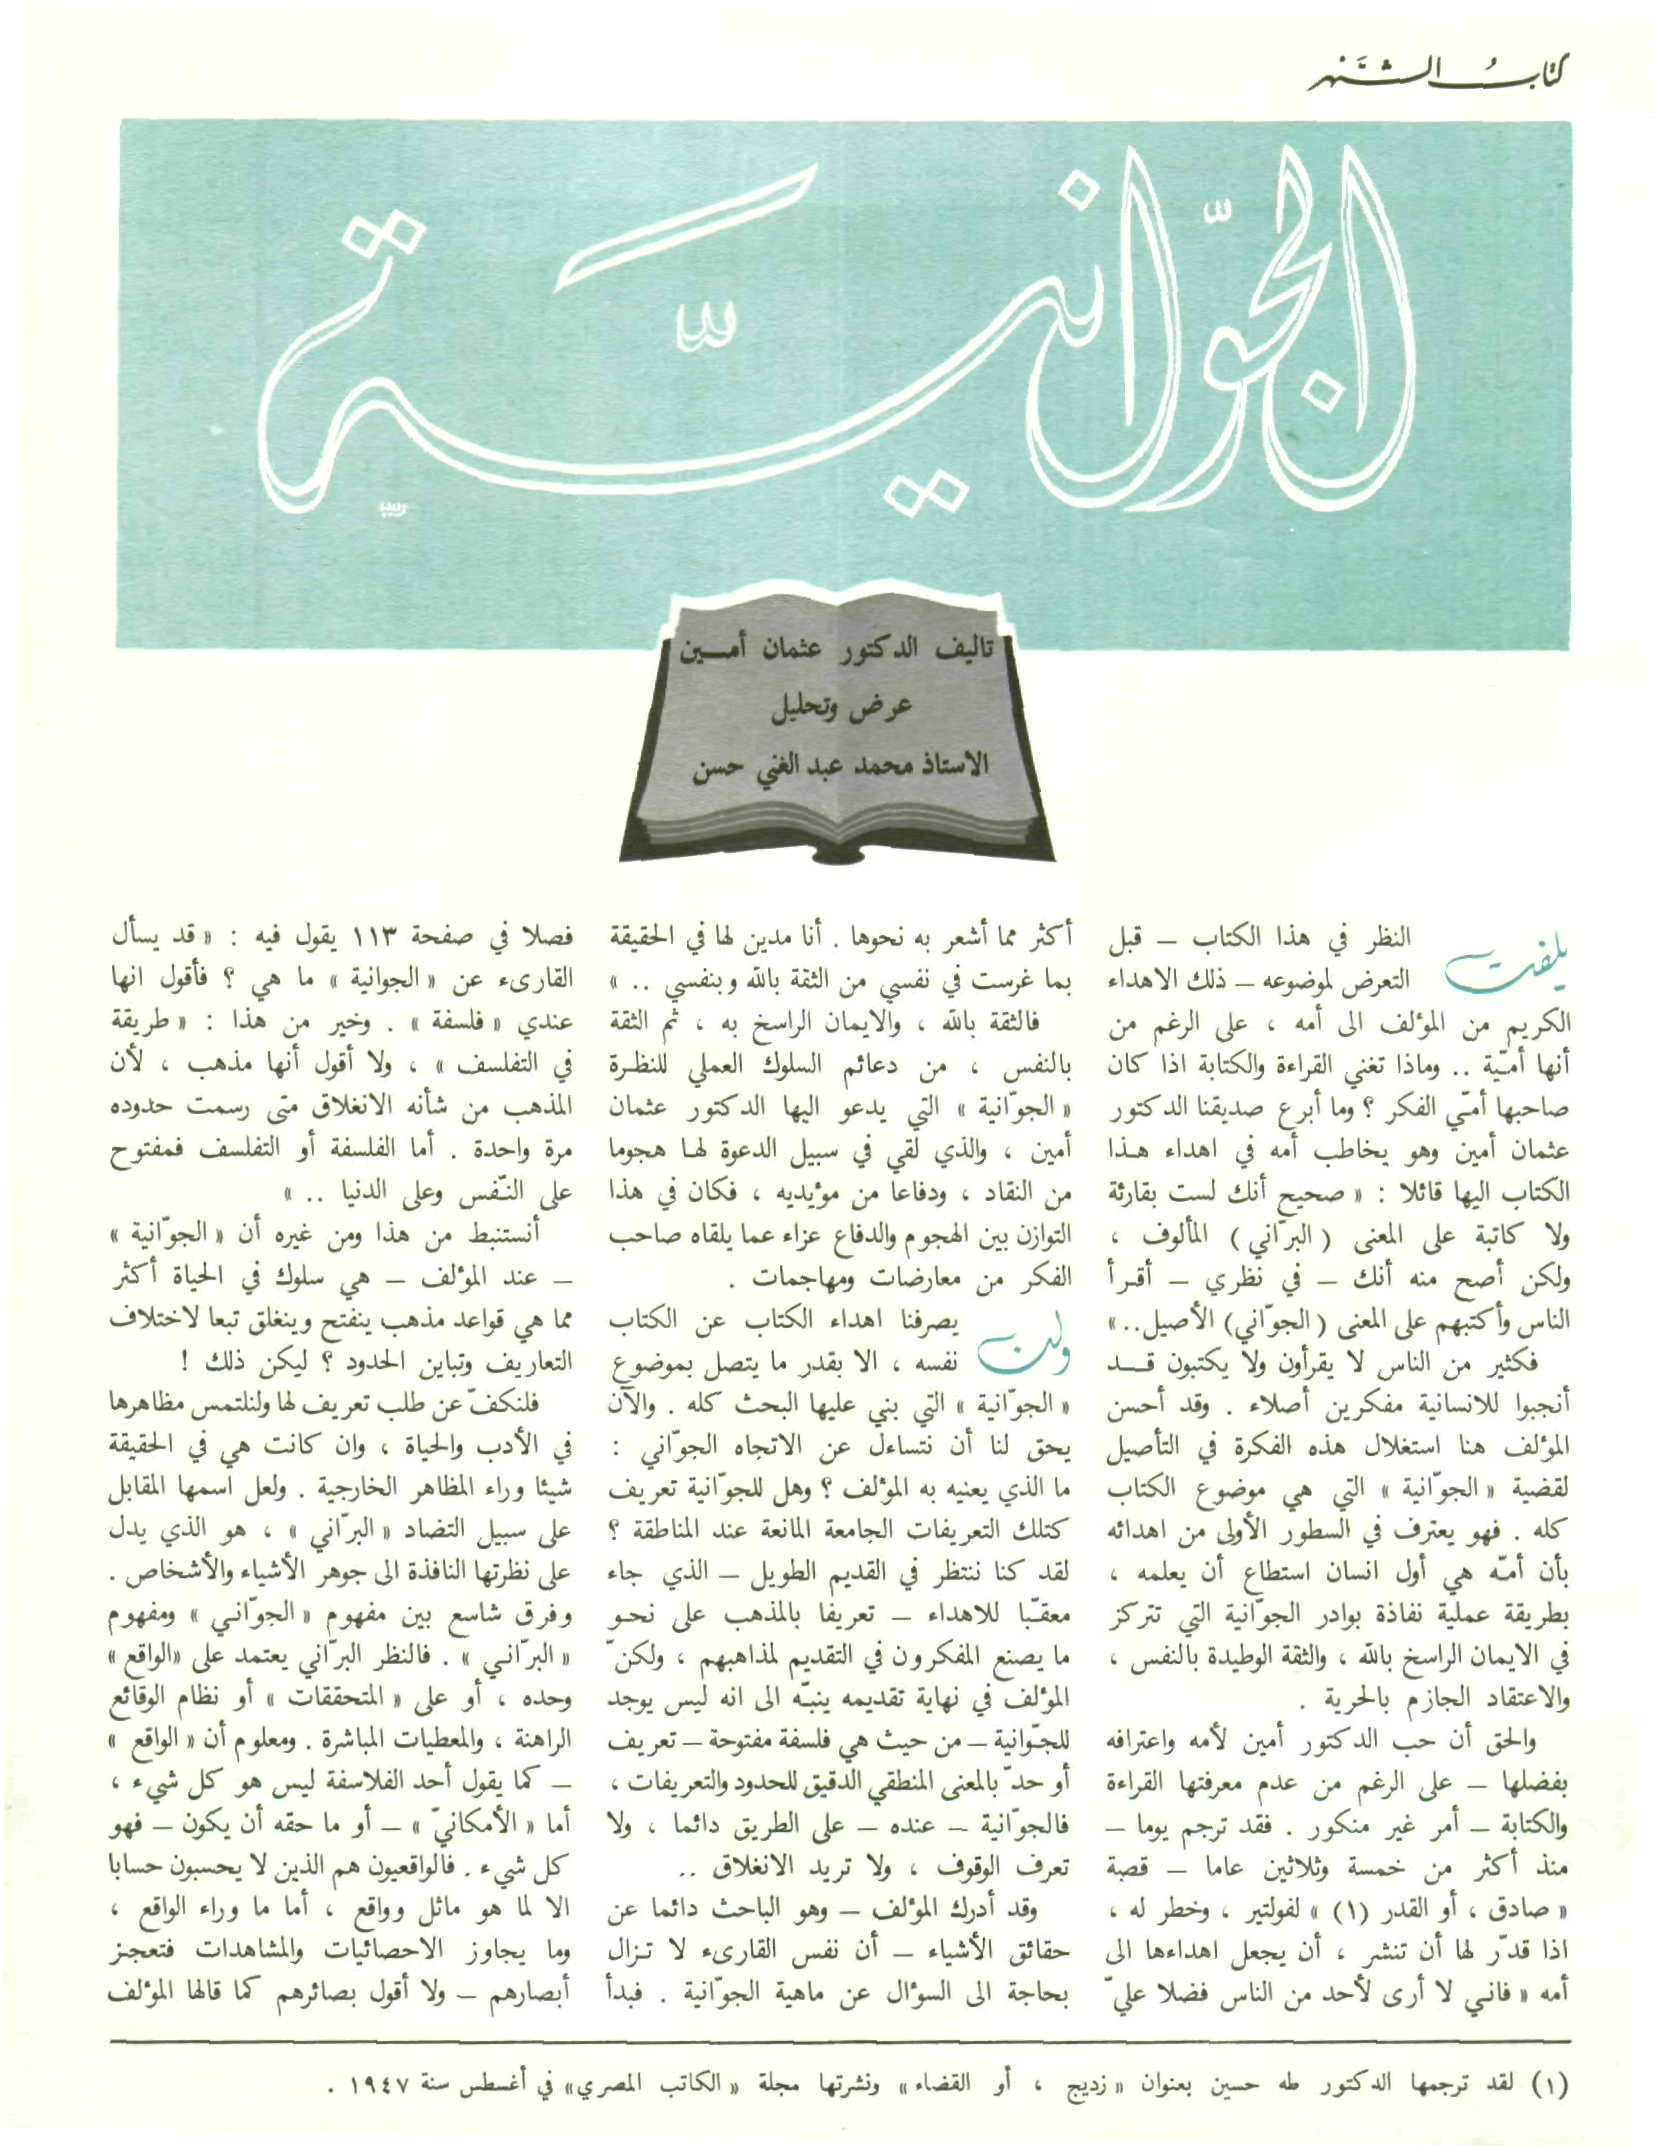 كتاب الشهر
الجوّانيّة
تاليف الدكتور عثمان أمـــين
عرض وتحليل
الاستاذ محمد عبد الغني حسن
يلفت
النظر في هذا الكتاب – قبل
التعرض لموضوعه – ذلك الاهداء
الكريم من المؤلف الى أمه ، على الرغم من
أنها أمـّية .. وماذا تغني القراءة والكتابة اذا كان
صاحبها أمـّي الفكر ؟ وما أبرع صديقنا الدكتور
عثمان أمين وهو يخاطب أمه في اهداء هـذا
الكتاب اليها قائلا : « صحيح أنك لست بقارئة
ولا كاتبة على المعنى ( البرّاني ) المألوف ،
ولكن أصح منه أنك – في نظري – أقـرأ
الناس وأكتبهم على المعنى ( الجوّاني ) الأصيل.. »
فكثير من الناس لا يقرأون ولا يكتبون قـــد
أنجبوا للانسانية مفكرين أصلاء . وقد أحسن
المؤلف هنا استغلال هذه الفكرة في التأصيل
لقضية « الجوّانية » التي هي موضوع الكتاب
كله . فهو يعترف في السطور الأولى من اهدائه
بأن أمـّه هي أول انسان استطاع أن يعلمه ،
بطريقة عملية نفاذة بوادر الجوّانية التي تتركز
في الايمان الراسخ بالله ، والثقة الوطيدة بالنفس ،
والاعتقاد الجازم بالحرية .
والحق أن حب الدكتور أمين لأمه واعترافه
بفضلها – على الرغم من عدم معرفتها القراءة
والكتابة – أمر غير منكور . فقد ترجم يوما –
منذ أكثر من خمسة وثلاثين عاما – قصة
« صادق ، أو القدر (١) » لفولتير ، وخطر له ،
اذا قدّر لها أن تنشر ، أن يجعل اهداءها الى
أمه « فاني لا أرى لأحد من الناس فضلا عليّ
أكثر مما أشعر به نحوها . أنا مدين لها في الحقيقة
بما غرست في نفسي من الثقة بالله وبنفسي .. »
فالثقة بالله ، والايمان الراسخ به ، ثم الثقة
بالنفس ، من دعائم السلوك العملي للنظرة
« الجوّانية » التي يدعو اليها الدكتور عثمان
أمين ، والذي لقي في سبيل الدعوة لهـا هجوما
من النقاد ، ودفاعا من مؤيديه ، فكان في هذا
التوازن بين الهجوم والدفاع عزاء عما يلقاه صاحب
الفكر من معارضات ومهاجمات .
ولن
يصرفنا اهداء الكتاب عن الكتاب
نفسه ، الا بقدر ما يتصل بموضوع
« الجوّانية » التي بني عليها البحث كله . والآن
يحق لنا أن نتساءل عن الاتجاه الجوّاني :
ما الذي يعنيه به المؤلف ؟ وهل للجوّانية تعريف
كتلك التعريفات الجامعة المانعة عند المناطقة ؟
لقد كنا ننتظر في القديم الطويل – الذي جاء
معقـّبا للاهداء – تعريفا بالمذهب على نحـو
ما يصنع المفكرون في التقديم لمذاهبهم ، ولكنّ
المؤلف في نهاية تقديمه ينبـّه الى انه ليس يوجد
للجـّوانية – من حيث هي فلسفة مفتوحة – تعريف
أو حدّ بالمعنى المنطقي الدقيق للحدود والتعريفات ،
فالجوّانية – عنده – على الطريق دائما ، ولا
تعرف الوقوف ، ولا تريد الانغلاق ..
وقد أدرك المؤلف – وهو الباحث دائما عن
حقائق الأشياء – أن نفس القارىء لا تـزال
بحاجة الى السؤال عن ماهية الجوّانية . فبدأ
فصلا في صفحة ١١٣ يقول فيه : « قد يسأل
القارىء عن « الجوانية » ما هي ؟ فأقول انها
عندي « فلسفة » . وخير من هذا : « طريقة
في التفلسف » ، ولا أقول أنها مذهب ، لأن
المذهب من شأنه الانغلاق متى رسمت حدوده
مرة واحدة . أما الفلسفة أو التفلسف فمفتوح
على النـّفس وعلى الدنيا .. »
أنستنبط من هذا ومن غيره أن « الجوّانية »
– عند المؤلف – هي سلوك في الحياة أكثر
مما هي قواعد مذهب ينفتح وينغلق تبعا لاختلاف
التعاريف وتباين الحدود ؟ ليكن ذلك !
فلنكفّ عن طلب تعريف لها ولنلتمس مظاهرها
في الأدب والحياة ، وان كانت هي في الحقيقة
شيئا وراء المظاهر الخارجية . ولعل اسمها المقابل
على سبيل التضاد « البرّاني » ، هو الذي يدل
على نظرتها النافذة الى جوهر الأشياء والأشخاص .
وفرق شاسع بين مفهوم « الجوّاني » ومفهوم
« البرّاني » . فالنظر البرّاني يعتمد على «الواقع »
وحده ، أو على « المتحققات » أو نظام الوقائع
الراهنة ، والمعطيات المباشرة . ومعلوم أن « الواقع »
– كما يقول أحد الفلاسفة ليس هو كل شيء ،
أما « الأمكانيّ » – أو ما حقه أن يكون – فهو
كل شيء . فالواقعيون هم الذين لا يحسبون حسابا
الا لما هو ماثل وواقع ، أما ما وراء الواقع ،
وما يجاوز الاحصائيات والمشاهدات فتعجـز
أبصارهم – ولا أقول بصائرهم كما قالها المؤلف
(١) لقد ترجمها الدكتور طه حسين بعنوان « زديج ، أو القضاء » ونشرتها مجلة « الكاتب المصري» في أغسطس سنة ١٩٤٧ .